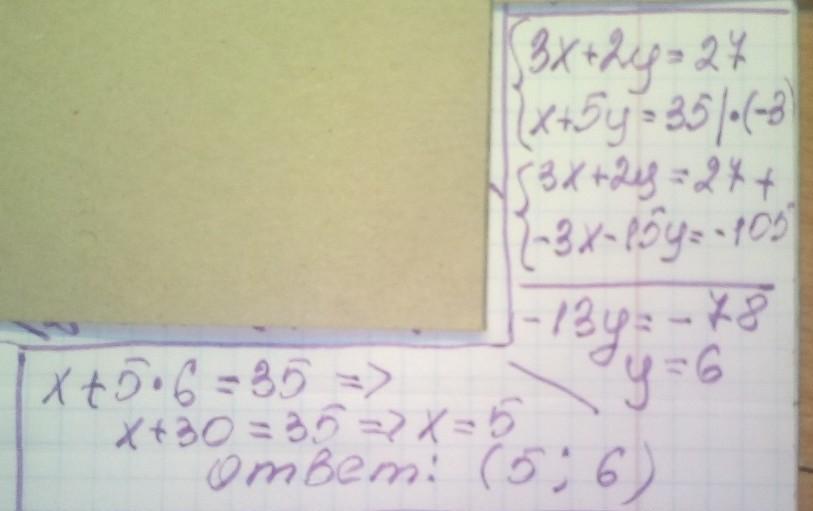 3x+2y=27
x+5y=35|·(-3)
3x+2y=27+
-3x-15y=-105
-13y=-78
y=6
x+5·6=35 =>
x+30=35=>x=5
ответ: (5; 6)